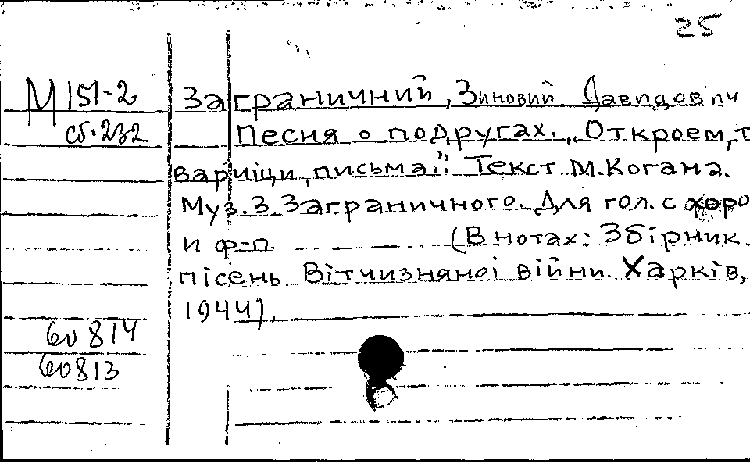 25
М 151-2
сб.232
Заграничний, Зиновий Давидович
Песня о подругах. „Откроем, т
варищи, письма." Текст М.Когана.
Муз. З. Заграничного. Для гол. с хоро
и ф-п (В нотах: Збірник
пісень Вітчизняної війни. Харків,
1944).
60814
60813